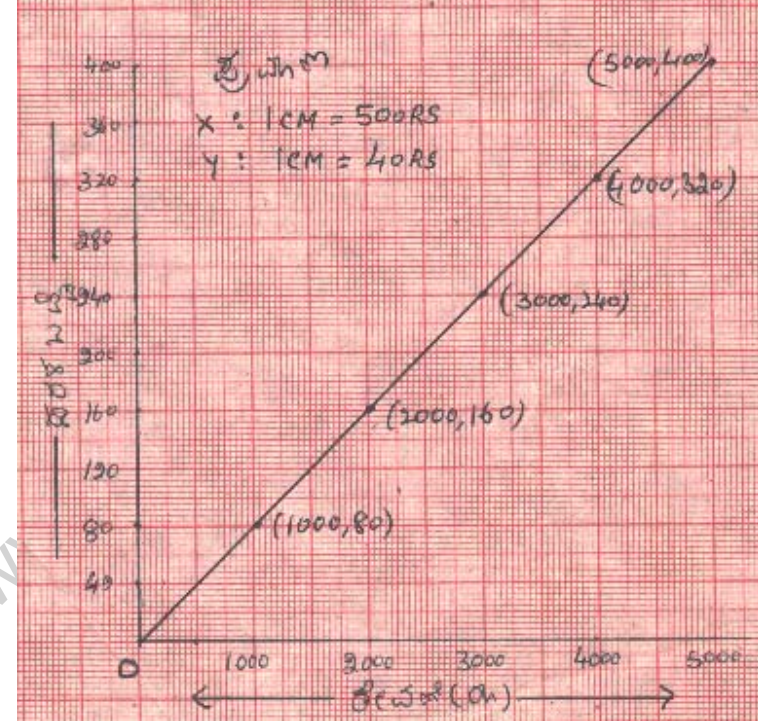 ಪ್ರಮಾಣ
X : 1CM = 500RS
Y : 1CM = 40RS
400
360
320
280
240
200
160
120
80
40
(5000,400)
(4000,320)
(3000,240)
(2000,160)
(1000,80)
0
1000 2000 3000 4000 5000
ಠೇವಣಿ (ರೂ)